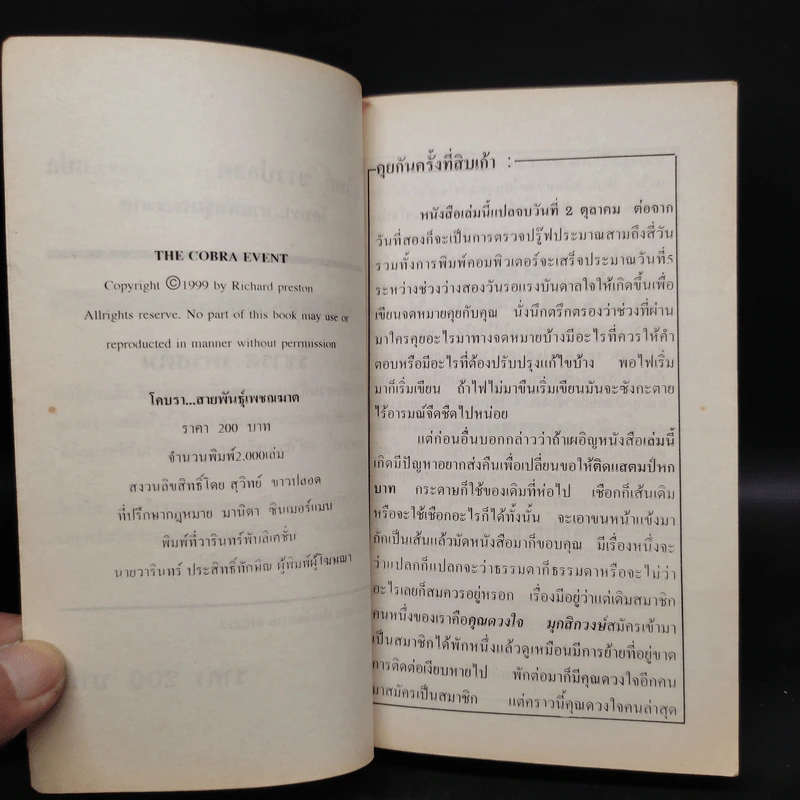 THE COBRA EVENT
Copyright ©1999 by Richard preston
Allrights reserve. No part of this book may use or
reproducted in manner without permmission
โคบรา...สายพันธุ์เพชฌฆาต
ราคา 200 บาท
จำนวนพิมพ์2,000เล่ม
สงวนลิขสิทธิ์โดย สุวิทย์ ขาวปลอด
ที่ปรึกษากฎหมาย มานิดา ซินเมอร์แมน
พิมพ์ที่วารินทร์พับลิเคชั่น
นายวารินทร์ ประสิทธิ์ทักษิณ ผู้พิมพ์ผู้โฆษณา
คุยกันครั้งที่สิบเก้า :
หนังสือเล่มนี้แปลจบวันที่ 2 ตุลาคม ต่อจาก
วันที่สองก็จะเป็นการตรวจปรู๊ฟประมาณสามถึงสี่วัน
รวมทั้งการพิมพ์คอมพิวเตอร์จะเสร็จประมาณวันที่5
ระหว่างช่วงว่างสองวันรอแรงบันดาลใจให้เกิดขึ้นเพื่อ
เขียนจดหมายคุยกับคุณ นั่งนึกตรึกตรองว่าช่วงที่ผ่าน
มาใครคุยอะไรมาทางจดหมายบ้างมีอะไรที่ควรให้คำ
ตอบหรือมีอะไรที่ต้องปรับปรุงแก้ไขบ้าง พอไฟเริ่ม
มาก็เริ่มเขียน ถ้าไฟไม่มาขืนเริ่มเขียนมันจะซังกะตาย
ไร้อารมณ์จืดชืดไปหน่อย
แต่ก่อนอื่นบอกกล่าวว่าถ้าเผอิญหนังสือเล่มนี้
เกิดมีปัญหาอยากส่งคืนเพื่อเปลี่ยนขอให้ติดแสตมป์หก
บาท กระดาษก็ใช้ของเดิมที่ห่อไป เชือกก็เส้นเดิม
หรือจะใช้เชือกอะไรก็ได้ทั้งนั้น จะเอาขนหน้าแข้งมา
ถักเป็นเส้นแล้วมัดหนังสือมาก็ขอบคุณ มีเรื่องหนึ่งจะ
ว่าแปลกก็แปลกจะว่าธรรมดาก็ธรรมดาหรือจะ ไม่ว่า
อะไรเลยก็สมควรอยู่หรอก เรื่องมีอยู่ว่าแต่เดิมสมาชิก
คนหนึ่งของเราคือคุณดวงใจ มุกสิกวงษ์สมัครเข้ามา
เป็นสมาชิกได้พักหนึ่งแล้วดูเหมือนมีการย้ายที่อยู่ขาด
การติดต่อเงียบหายไป พักต่อมาก็มีคุณดวงใจอีกคน
มาสมัครเป็นสมาชิก แต่คราวนี้คุณดวงใจคนล่าสุด